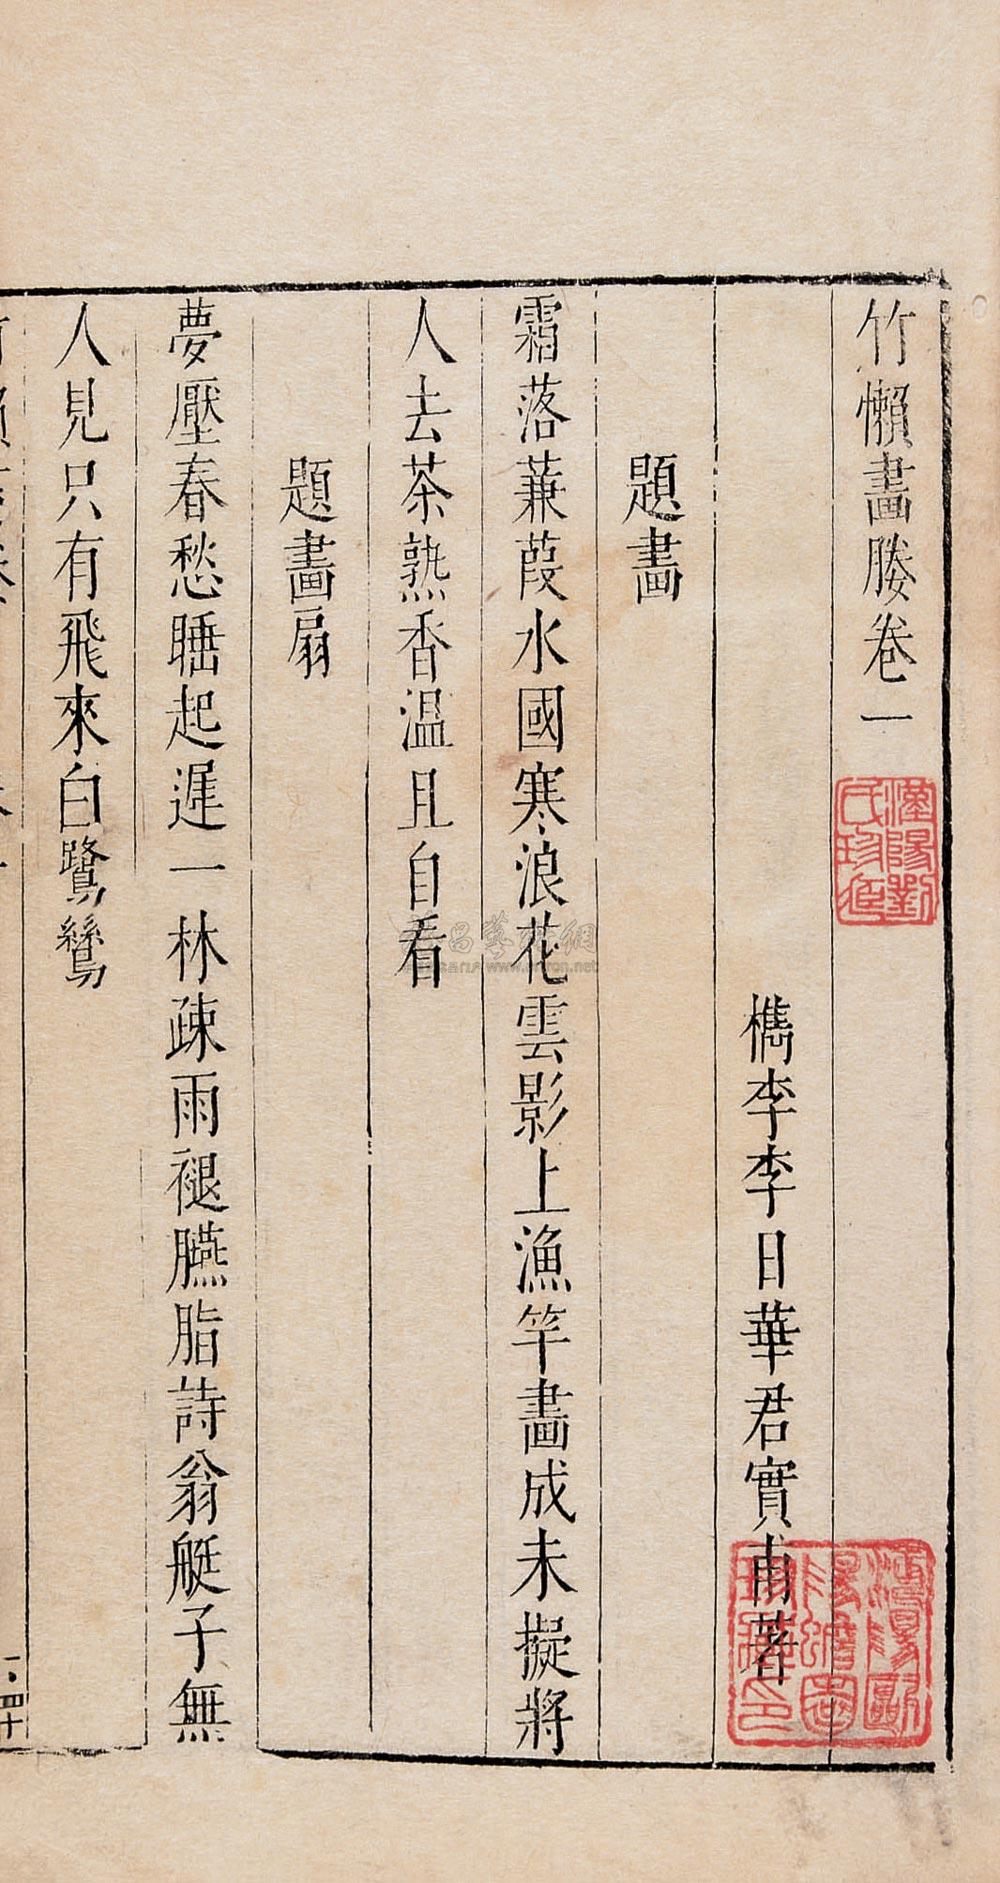 竹嬾畫媵卷一
檇李李日華君實甫著
題畫
霜落蒹葭水國寒浪花雲影上漁竿畫成未擬將
人去茶熟香溫且自看
題畫扇
夢壓春愁睡起遲一林疎雨褪臙脂詩翁艇子無
人見只有飛來白鷺鷥
漢陽劉氏珍藏